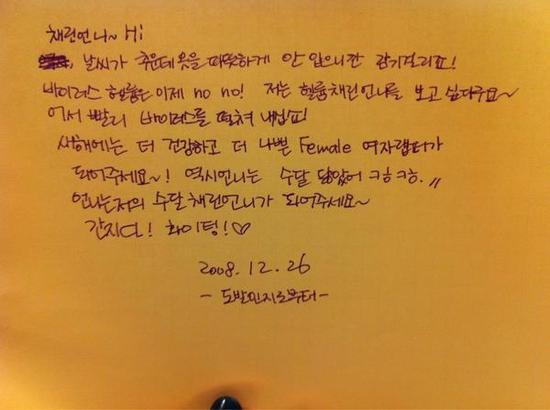 채린언니~ Hi
날씨가 추운데 옷을 따뜻하게 안 입으니깐 감기걸리죠!
바이러스 헬륨은 이제 no no! 저는 헬륨채린언니를 보고 싶다구요~
어서 빨리 바이러스를 떨쳐 내십쇼!
새해에는 더 건강하고 더 나쁠 Female 여자랩터가
되어주세요~! 역시언니는 수달 닮았어 ㅋㅎㅋㅎ.〃
언니는저의 수달채린언니가 되어주세요~
간지CL! 화이팅!♡
2008.12.26
- 도발민지로부터 -